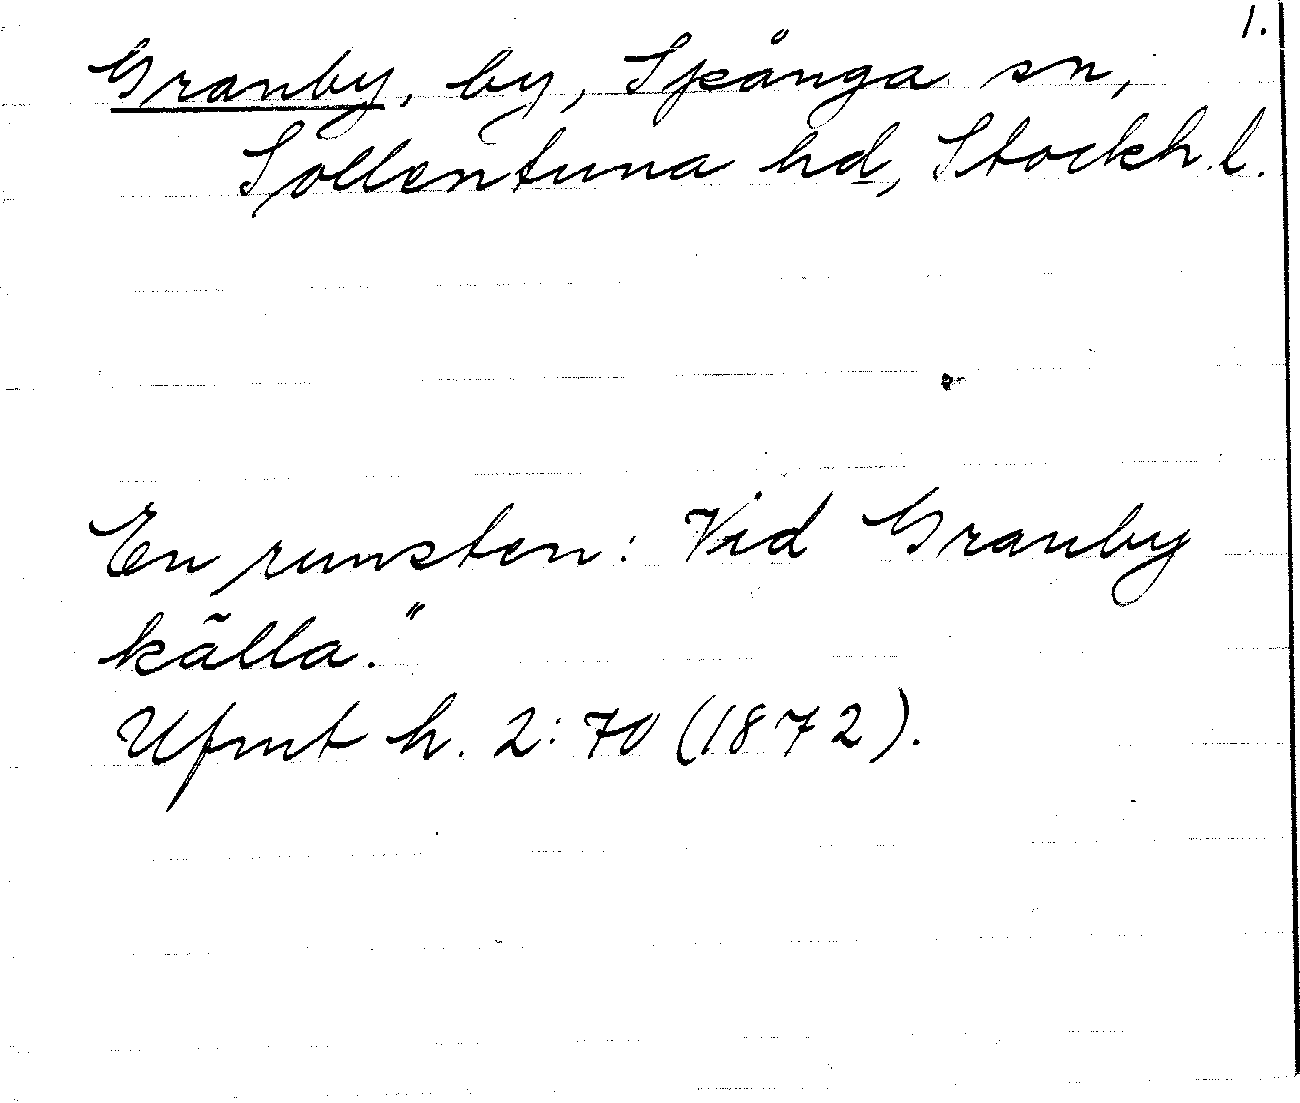 1.
Granby, by, Spånga sn,
Sollentuna hd, Stockh. l.
En runsten: Vid Granby
källa."
Ufmt h. 2:70 (1872).